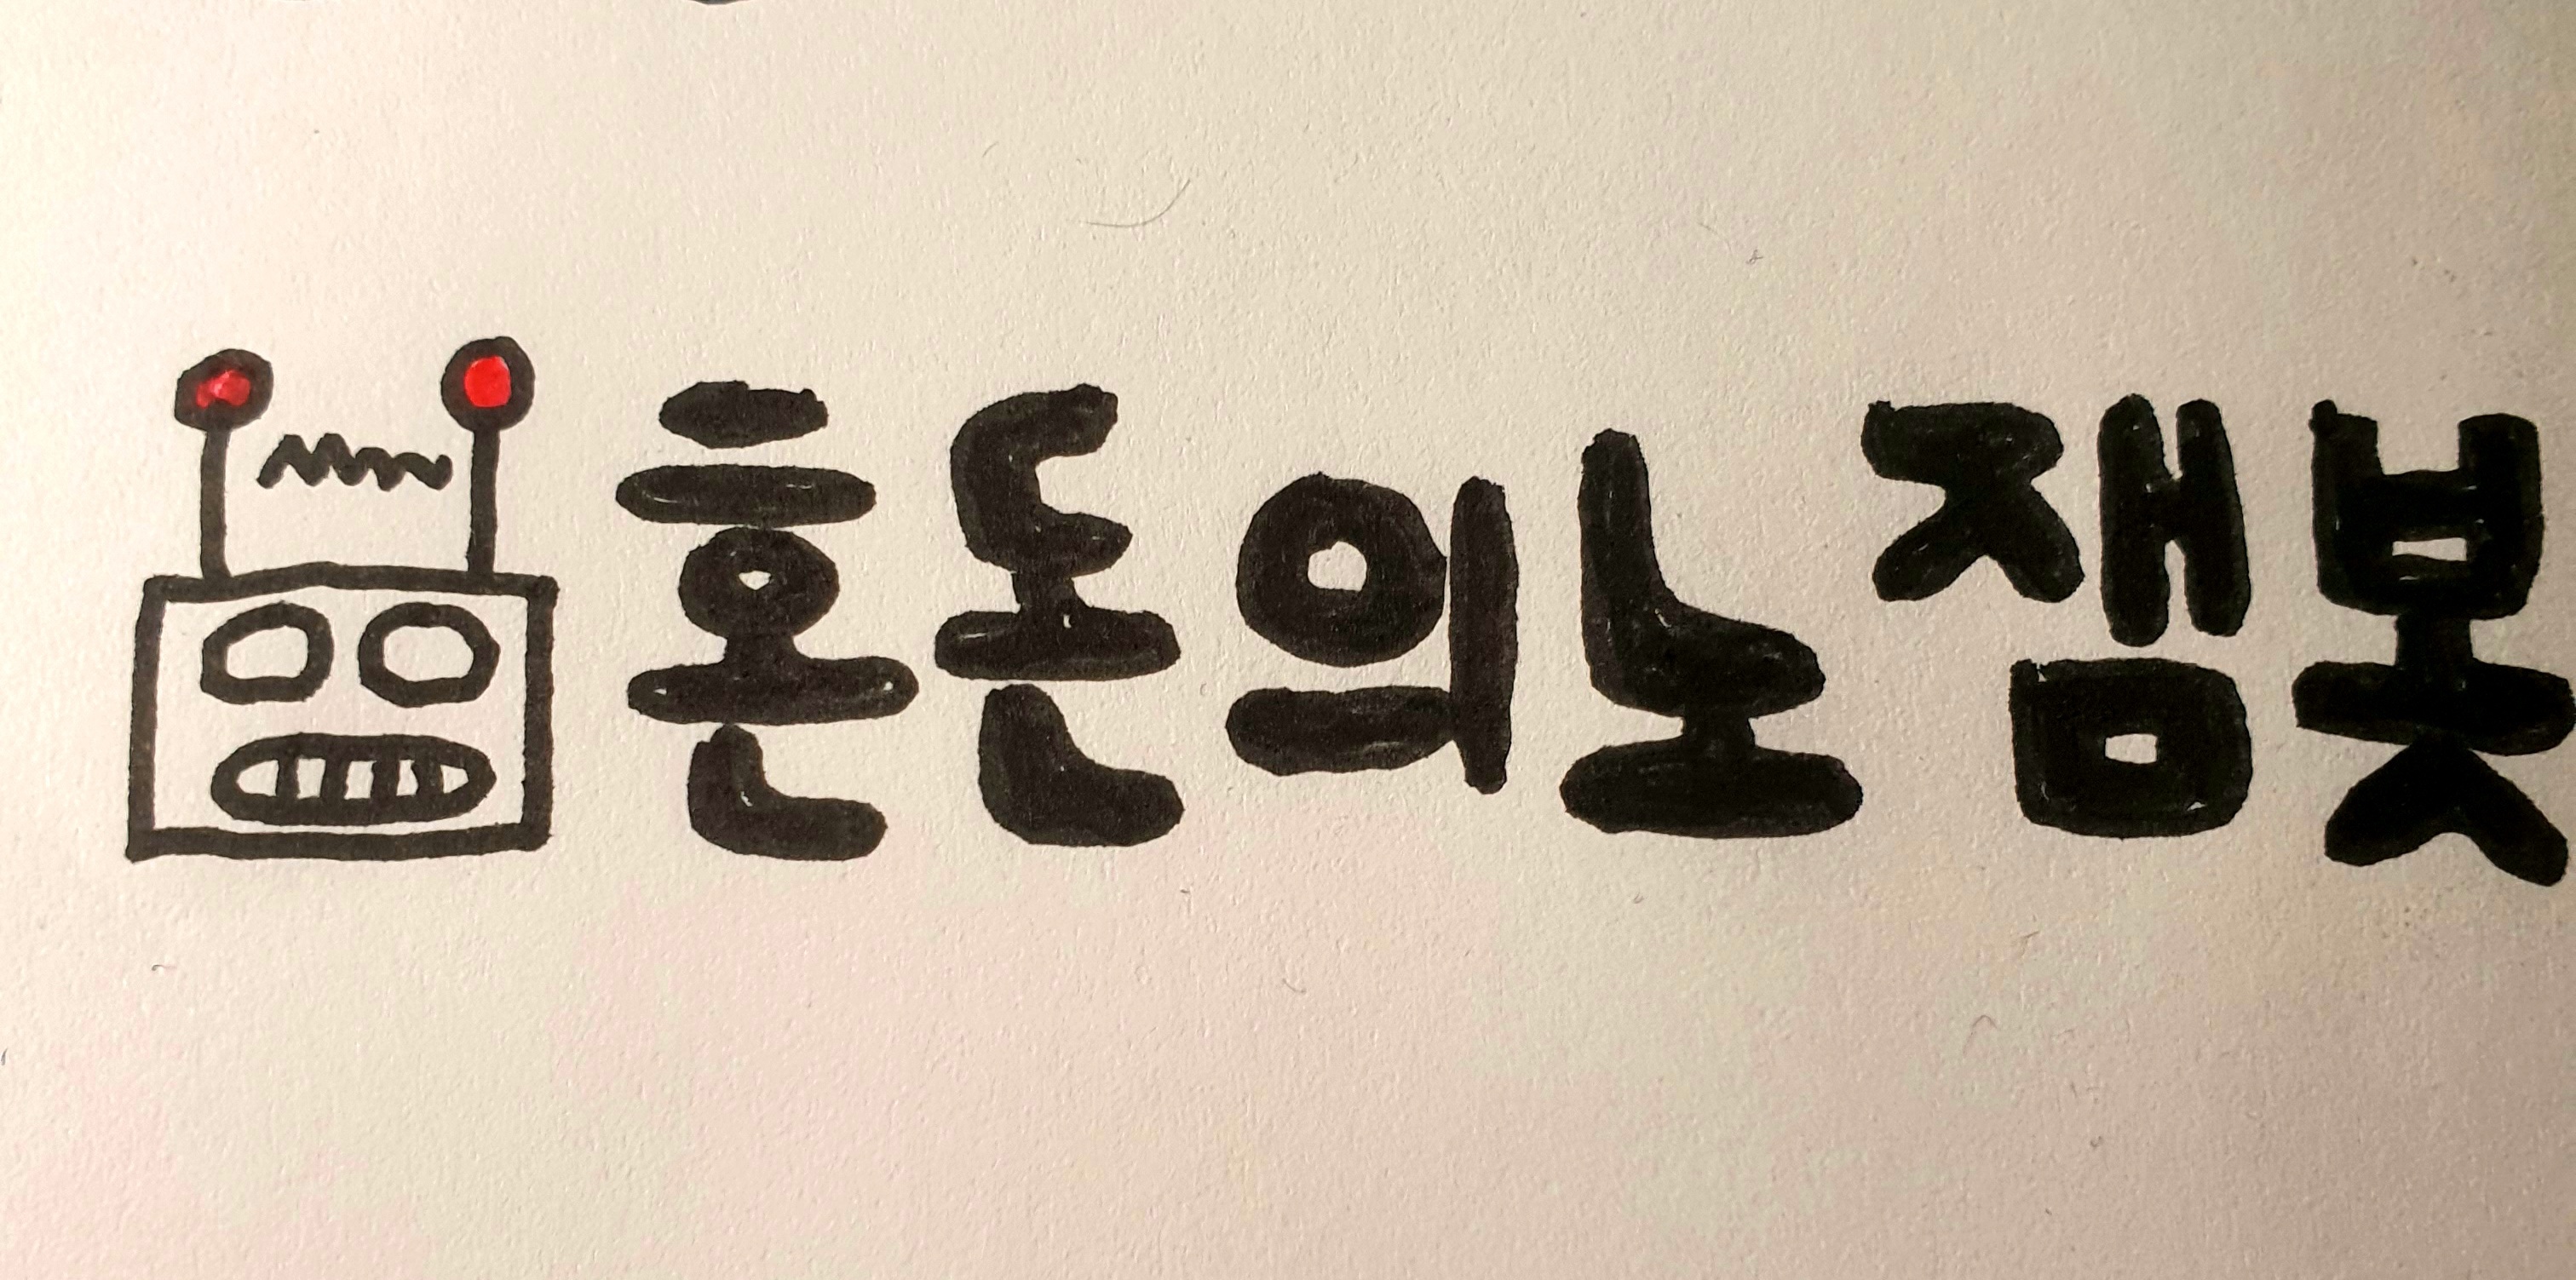 혼돈의노잼봇